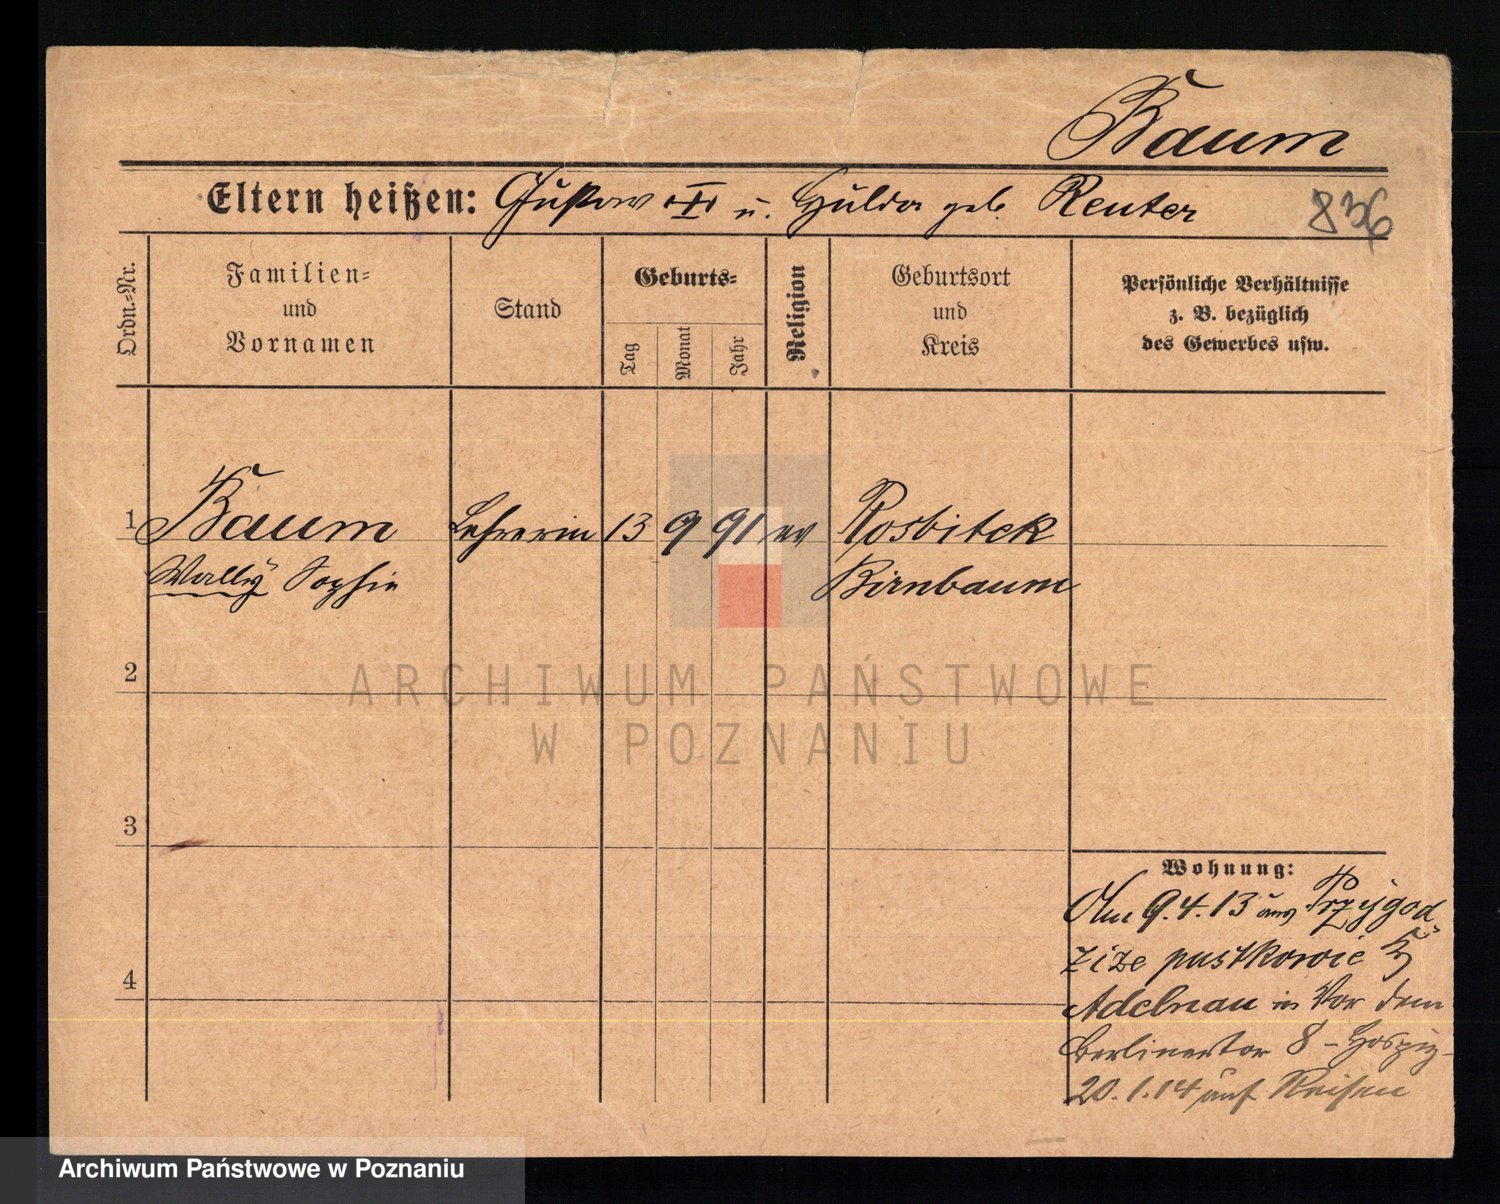 Baum
Eltern heißen: Gustav u. Hulda geb. Reuter
836
Ordn.=Nr.
Familien=
und
Vornamen
Stand
Geburts=
Tag
Monat
Jahr
Religion
Geburtsort
und
Kreis
Persönliche Verhältnisse
z. B. bezüglich
des Gewerbes usw.
1 Baum Lehrerin 13 9 91 ev Rosbitek
Wally Sophie Birnbaum
2
ARCHIWUM PAŃSTWOWE
W POZNANIU
3
Wohnung:
Am 9.4.13 aus Przygod
zize pustkowie
4
Adelnau in Vor dem
Berlinertor 8 - Hospiz -
20.1.14 auf Reisen
Archiwum Państwowe w Poznaniu